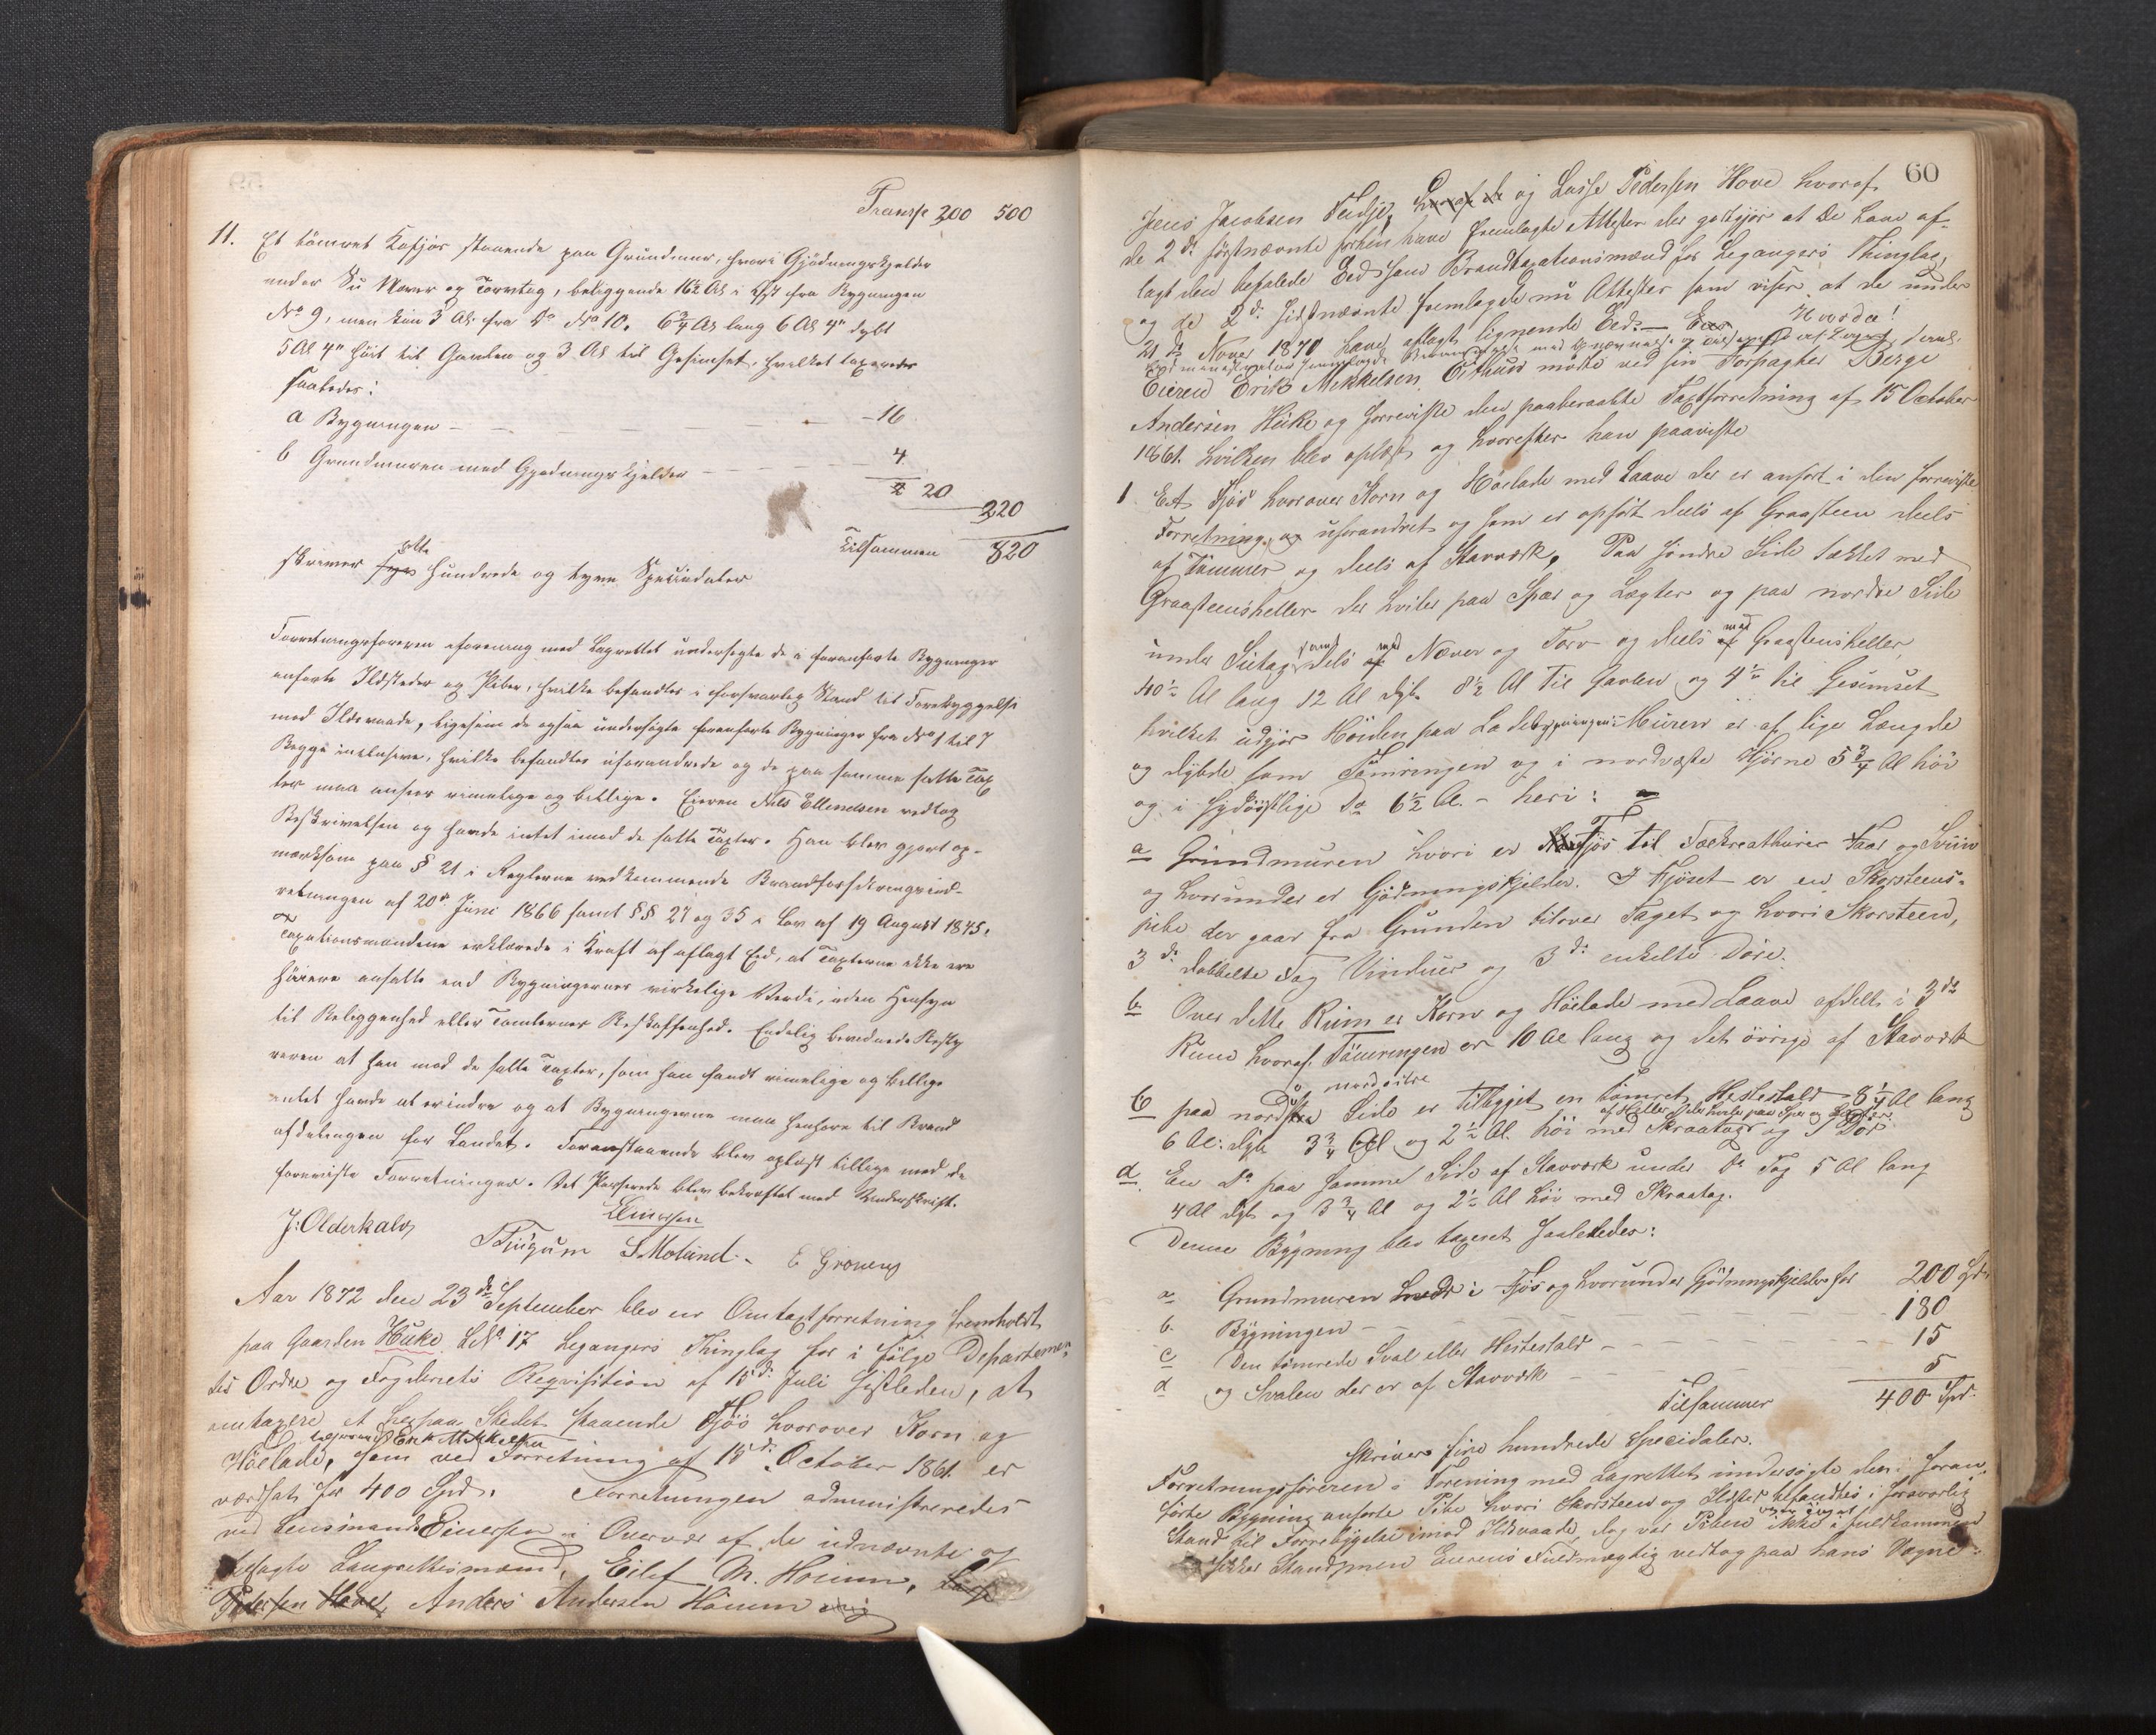 Transp 300 500
11. Et tömret Kofjös staaende paa Grundmur, hvori Gjödningskjelder
under Su Næver og Torvtag, beliggende 16½ Al i Öst fra Bygningen
No 9, men kun 3 Al fra Do No 10. 6¾ Al lang 6 Al 4" dybt
5 Al 4" höit til Gavlen og 3 Al til Gesimset, hvilket taxeredes
saaledes:
a Bygningen - - - 16
b Grundmuren med Gjödningskjelder - - - 4
20
320
Tilsammen 820
skriver otte Hundrede og tyve Speciedaler
Forretningsföreren i forening med Lagrettet undersögte de i foranförte Bygninger
anförte Ildsteder og Piber, hvilke befandtes i forsvarlig Stand til Forebyggelse
mod Ildsvaade, ligesom de ogsaa undersögte foranförte Bygninger fra No 1 til 7
Begge inclusive, hvilke befandtes uforandrede og de paa samme satte Tax
ter maa ansees rimelige og billige. Eieren Nils Ellendsen vedtog
Beskrivelsen og havde intet imod de satte Taxter. Han blev gjort op-
mærksom paa § 21 i Reglerne vedkommende Brandforsikringsind-
retningen af 20de Juni 1866 samt §§ 27 og 35 i Lov af 19 August 1845.
Taxationsmændene erklærede i Kraft af aflagt Eed, at Taxterne ikke ere
höiere ansatte end Bygningernes virkelige Værdi, uden Hensyn
til Beliggenhed eller Tomternes Beskaffenhed. Endelig bevidnede Besty
reren at han mod de satte Taxter, som han fandt rimelige og billige
intet havde at erindre og at Bygningerne maa henföre til Brand
afdelingen for Landet. Foranstaaende blev oplæst tillige med de
foreviste Forretninger. Det Passerede blev bekræftet med Underskrift.
J: Olderkalv Einersen
T Tjugum S. Molund - E Gröneng
Aar 1872 den 23de September blev en Omtaxtforretning fremholdt
paa Gaarden Huke LNo 17 Legangers Thinglag for i fölge Departemen-
tets Ordre og Fogderiets Reqvisition af 15de Juli sistleden, at
omtaxere et herpaa Stedet staaende Fjös hvorover Korn og
tilhörende Erik Mikkelsen
Höelade, som ved Forretning af 15de October 1861 er
værdsat for 400 Spd. Forretningen administreredes
ved Lensmand Einersen i Overvær af de udnævnte og
edtagte Laugrettesmænd, Eilef M. Hamm, Lasse
Pedersen Hove, Anders Andersen Hamm
60
Jens Jacobsen Feidje, hvoraf de og Lasse Pedersen Hove hvoraf
de 2de förstnævnte forhen have fremlagte Attester der godtgjör at De have af-
lagt den befalede Eed som Brandtaxationsmænd for Legangers Thinglag,
og de 2de sidstnævnte fremlagde nu Attester som viser at de under
21de Novr 1870 have aflagt lignende Eed. -
Eieren Erik Mikkelsen mödte ved sin Forpagter Berge
Andersen Huke og foreviste den paaberaabte Taxtforretning af 15 October
1861. hvilken blev oplæst og hvorefter han paaviste
1 Et Fjös hvorover Korn og Höelade med Laave der er anfört i den foreviste
Forretning, uforandret og som er opfört dels af Graasteen deels
af Tömmer og deels af Stavværk, Paa söndre Side tækket med
Graasteensheller der hviler paa Spær og Lægter og paa nordre Side
under Sutag samt dels med Næver og Torv og deels med Graasteensheller,
40½ Al lang 12 Al dyb 8½ Al til Gavlen og 4½ til Gesimset
hvilket udgjör Höiden paa Ladebygningen. Muren er af lige Længde
og Dybde som Tömringen og i nordvæste Hjörne 5¾ Al höi
og i sydöstlige Do 6½ Al. - heri:
a Grundmuren hvori er Fjös til Fækreathurer Faar og Sviin
og hvorunder er Gjödningskjelder. I Fjöset er en Skorsteens-
pibe der gaar fra Grunden tilover Taget og hvori Skorsteen,
3de dobbelte Fag Vinduer og 3de enkelte Döre.
b Over dette Rum er Korn og Höelade med Laave afdelt i 3de
Rum hvoraf Tömringen er 10 Al lang og det övrige af Stavværk
c paa nordre Side er tilbygget en tömret Hestestald 8¼ Al lang
af Heller der hviler paa Spær og Lægter
6 Al: dyb 3¾ Al og 2½ Al. höi med Skraatag og 1 Dör
d En Do paa samme Side af Stavværk under Do Tag 5 Al lang
4 Al dyb og 3¾ Al og 2½ Al höi med Skraatag.
Denne Bygning blev taxeret saaledes:
a Grundmuren hvori Fjös og hvorunder Gjödningskjelder for 200 Spd
b. Bygningen - - - 180
c Den tömrede Sval eller Hestestald - - - 15
d og Svalen der er af Stavværk - - 5
Tilsammen 400 Spd.
Skriver fire hundrede Speciedaler.
Forretningsföreren i Forening med Lagrettet undersögte den i foran-
förte Bygning anförte Pibe hvori Skorsteen og Ildsted befandtes i forsvarlig
Stand til Forrebyggelse imod Ildsvaade, dog var Piben ikke i fuldkommen
sikker Stand men Eierens Fuldmægtig vedtog paa hans Vegne